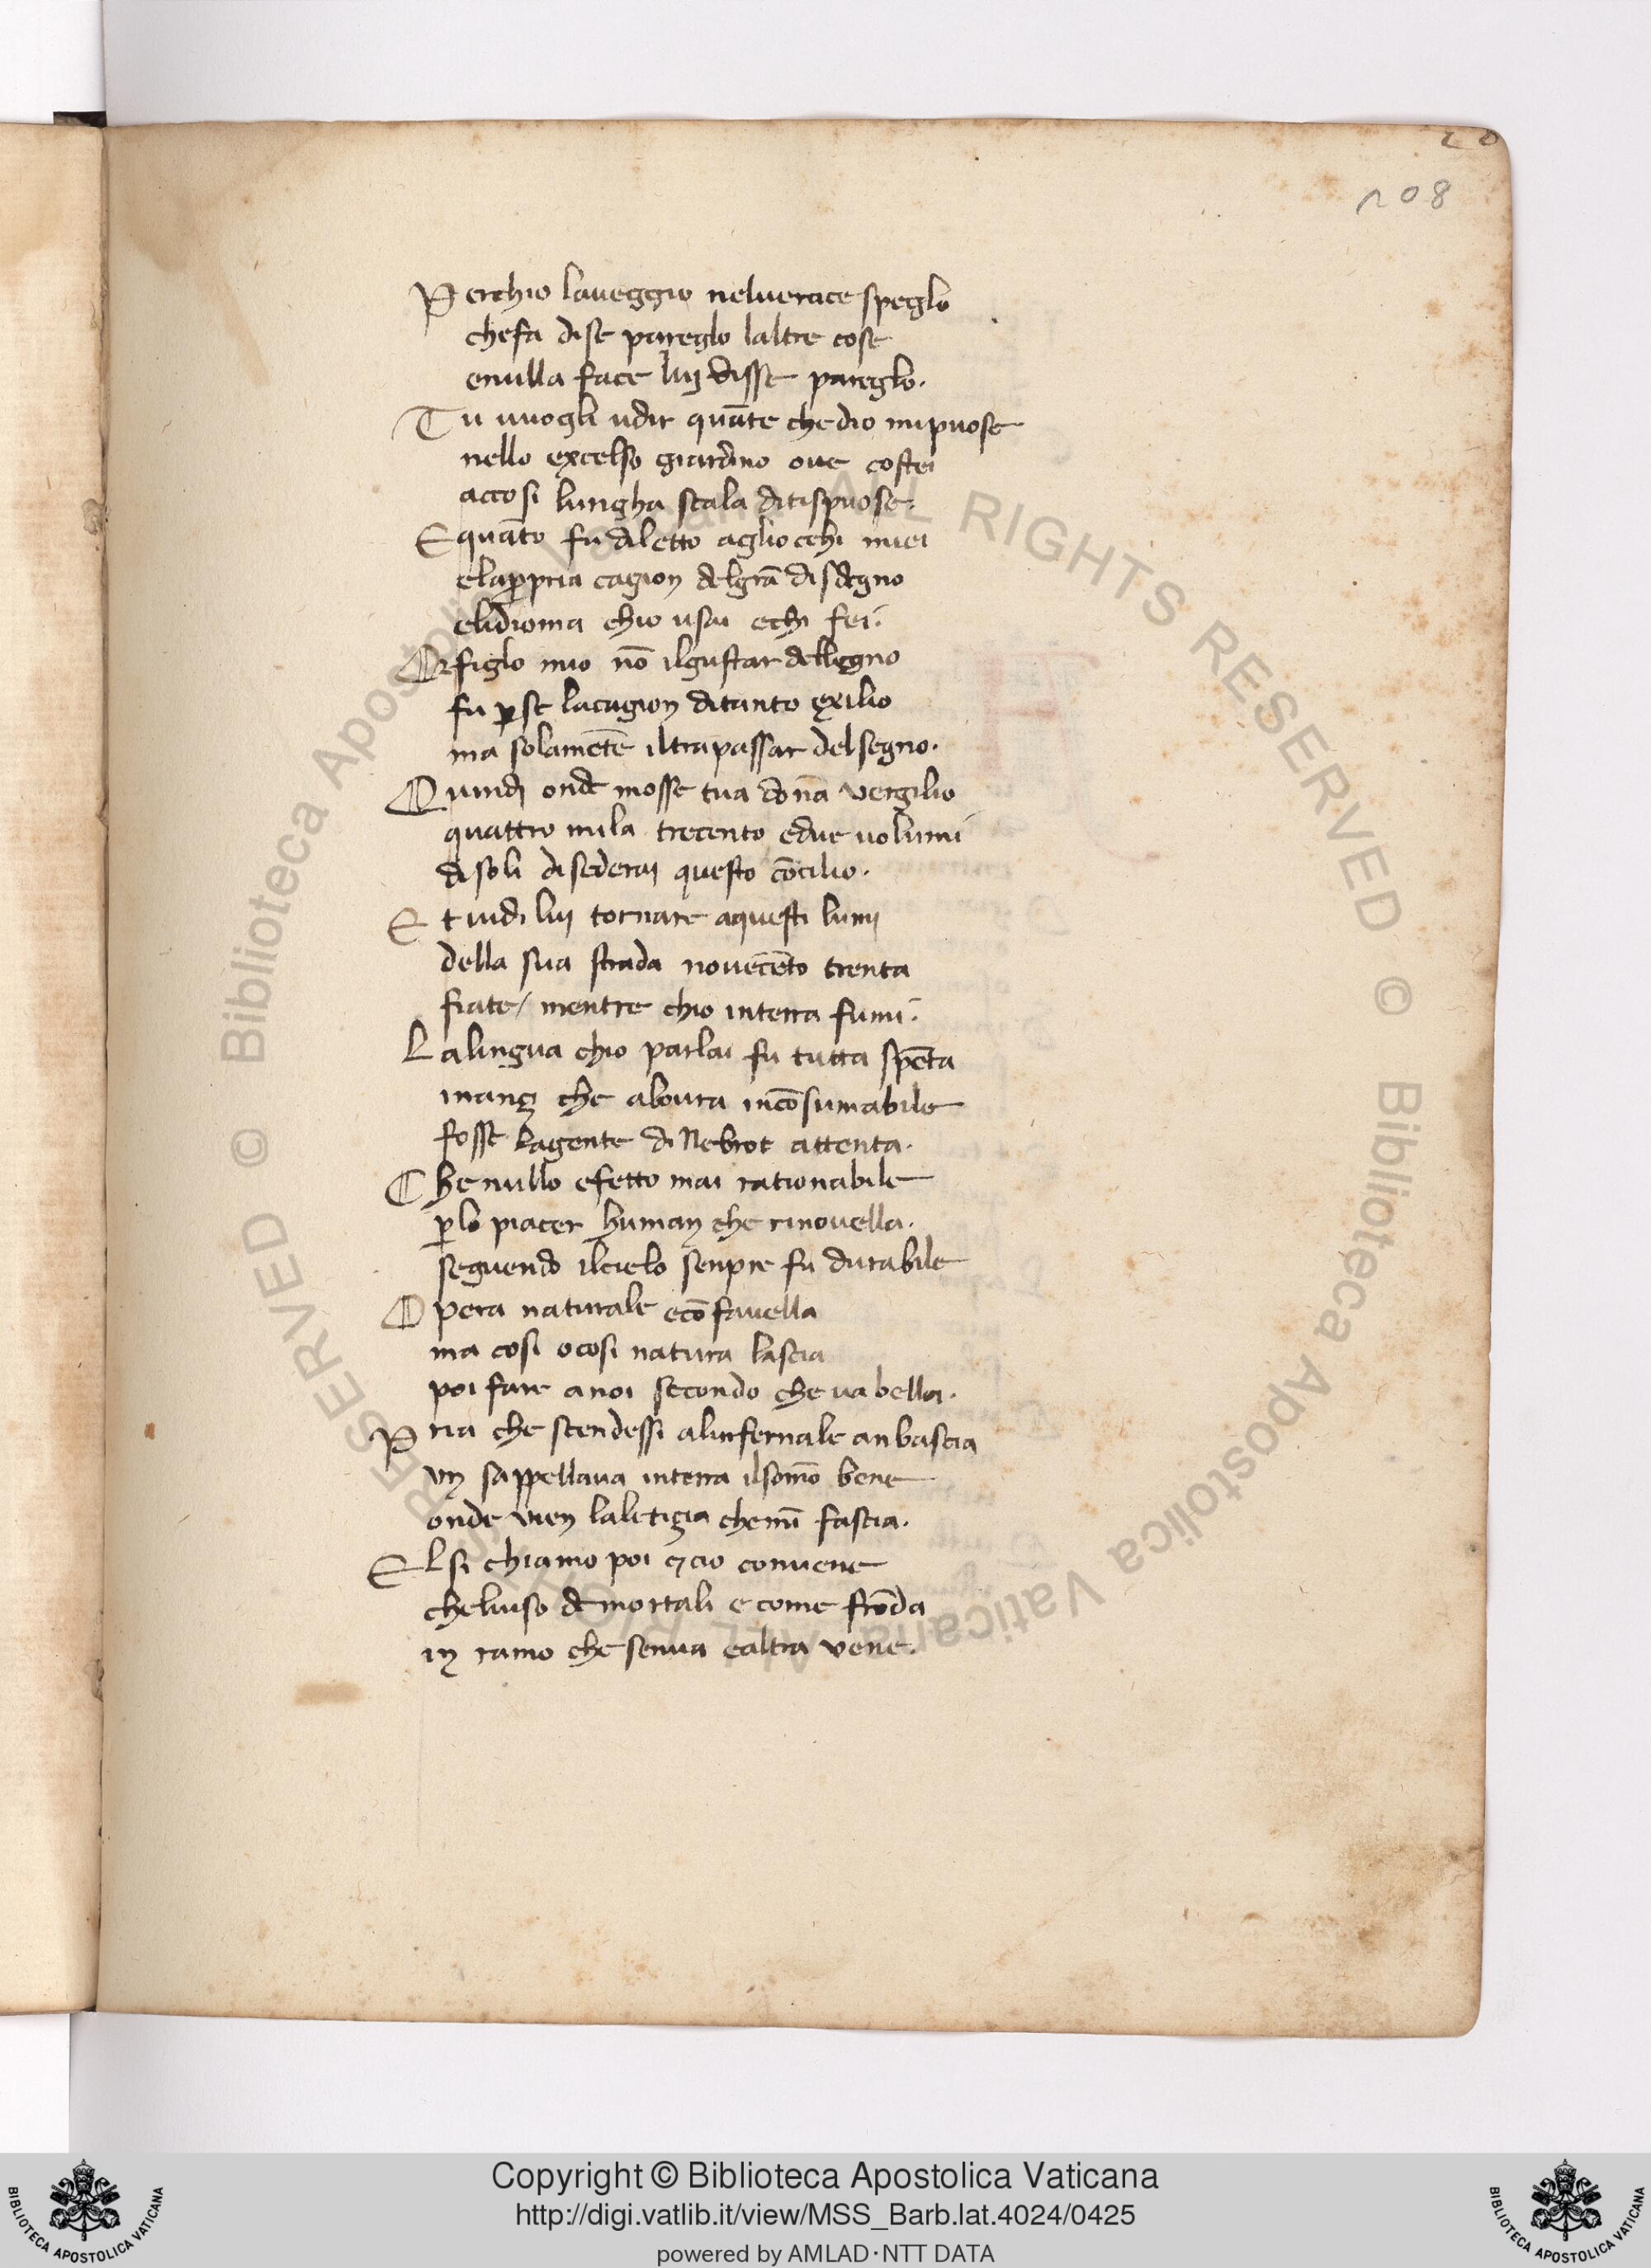 20
108
Perchio laueggio neluerace speglo
chefa dise pareglo laltre cose
enulla face luj disse pareglo.
Tu uuogli udir quāte chedio mipuose
nello excelso giardino oue costei
accosi lungha scala ditispuose.
Equāto fu diletto agliocchi miei
elaꝓpria cagion delgrā disdegno
elidioma chio usai echi fei.
Or figlo mio nō ilgustar dellegno
fu ꝑse lacagion ditanto exilio
ma solamēte iltrapassar delsegno.
Quindj onde mosse tua donā vergilio
quattro mila trecento edue uolumi
disoli disederaj questo cōcilio.
Et uidi luj tornare aquesti lumj
della sua strada nouecēto trenta
fiate/ mentre chio interra fumi.
Lalingua chio parlai fu tutta spēta
inanz che aloura incōsumabile
fosse lagente di Nebrot attenta.
Che nullo efetto mai rationabile
ꝑlo piacer human che rinouella.
seguendo ilcielo senpre fu durabile
Opera naturale ecō fauella
ma cosi ocosi natura lascia
poi fare anoi secondo che ua bella.
Pria che scendessi alinfernale anbascia
vn sappellaua interra ilsomō bene
onde vien laletigia chemī fascia.
El si chiamo poi ⁊cio conuene
cheluso de mortali e come frōda
in ramo che senua ealtra vene.
© Biblioteca Apostolica Vaticana ALL RIGHTS RESERVED © Biblioteca Apostolica Vaticana ALL RIGHTS RESERVED
Copyright © Biblioteca Apostolica Vaticana
http://digi.vatlib.it/view/MSS_Barb.lat.4024/0425
powered by AMLAD·NTT DATA
BIBLIOTECA APOSTOLICA VATICANA
BIBLIOTECA APOSTOLICA VATICANA